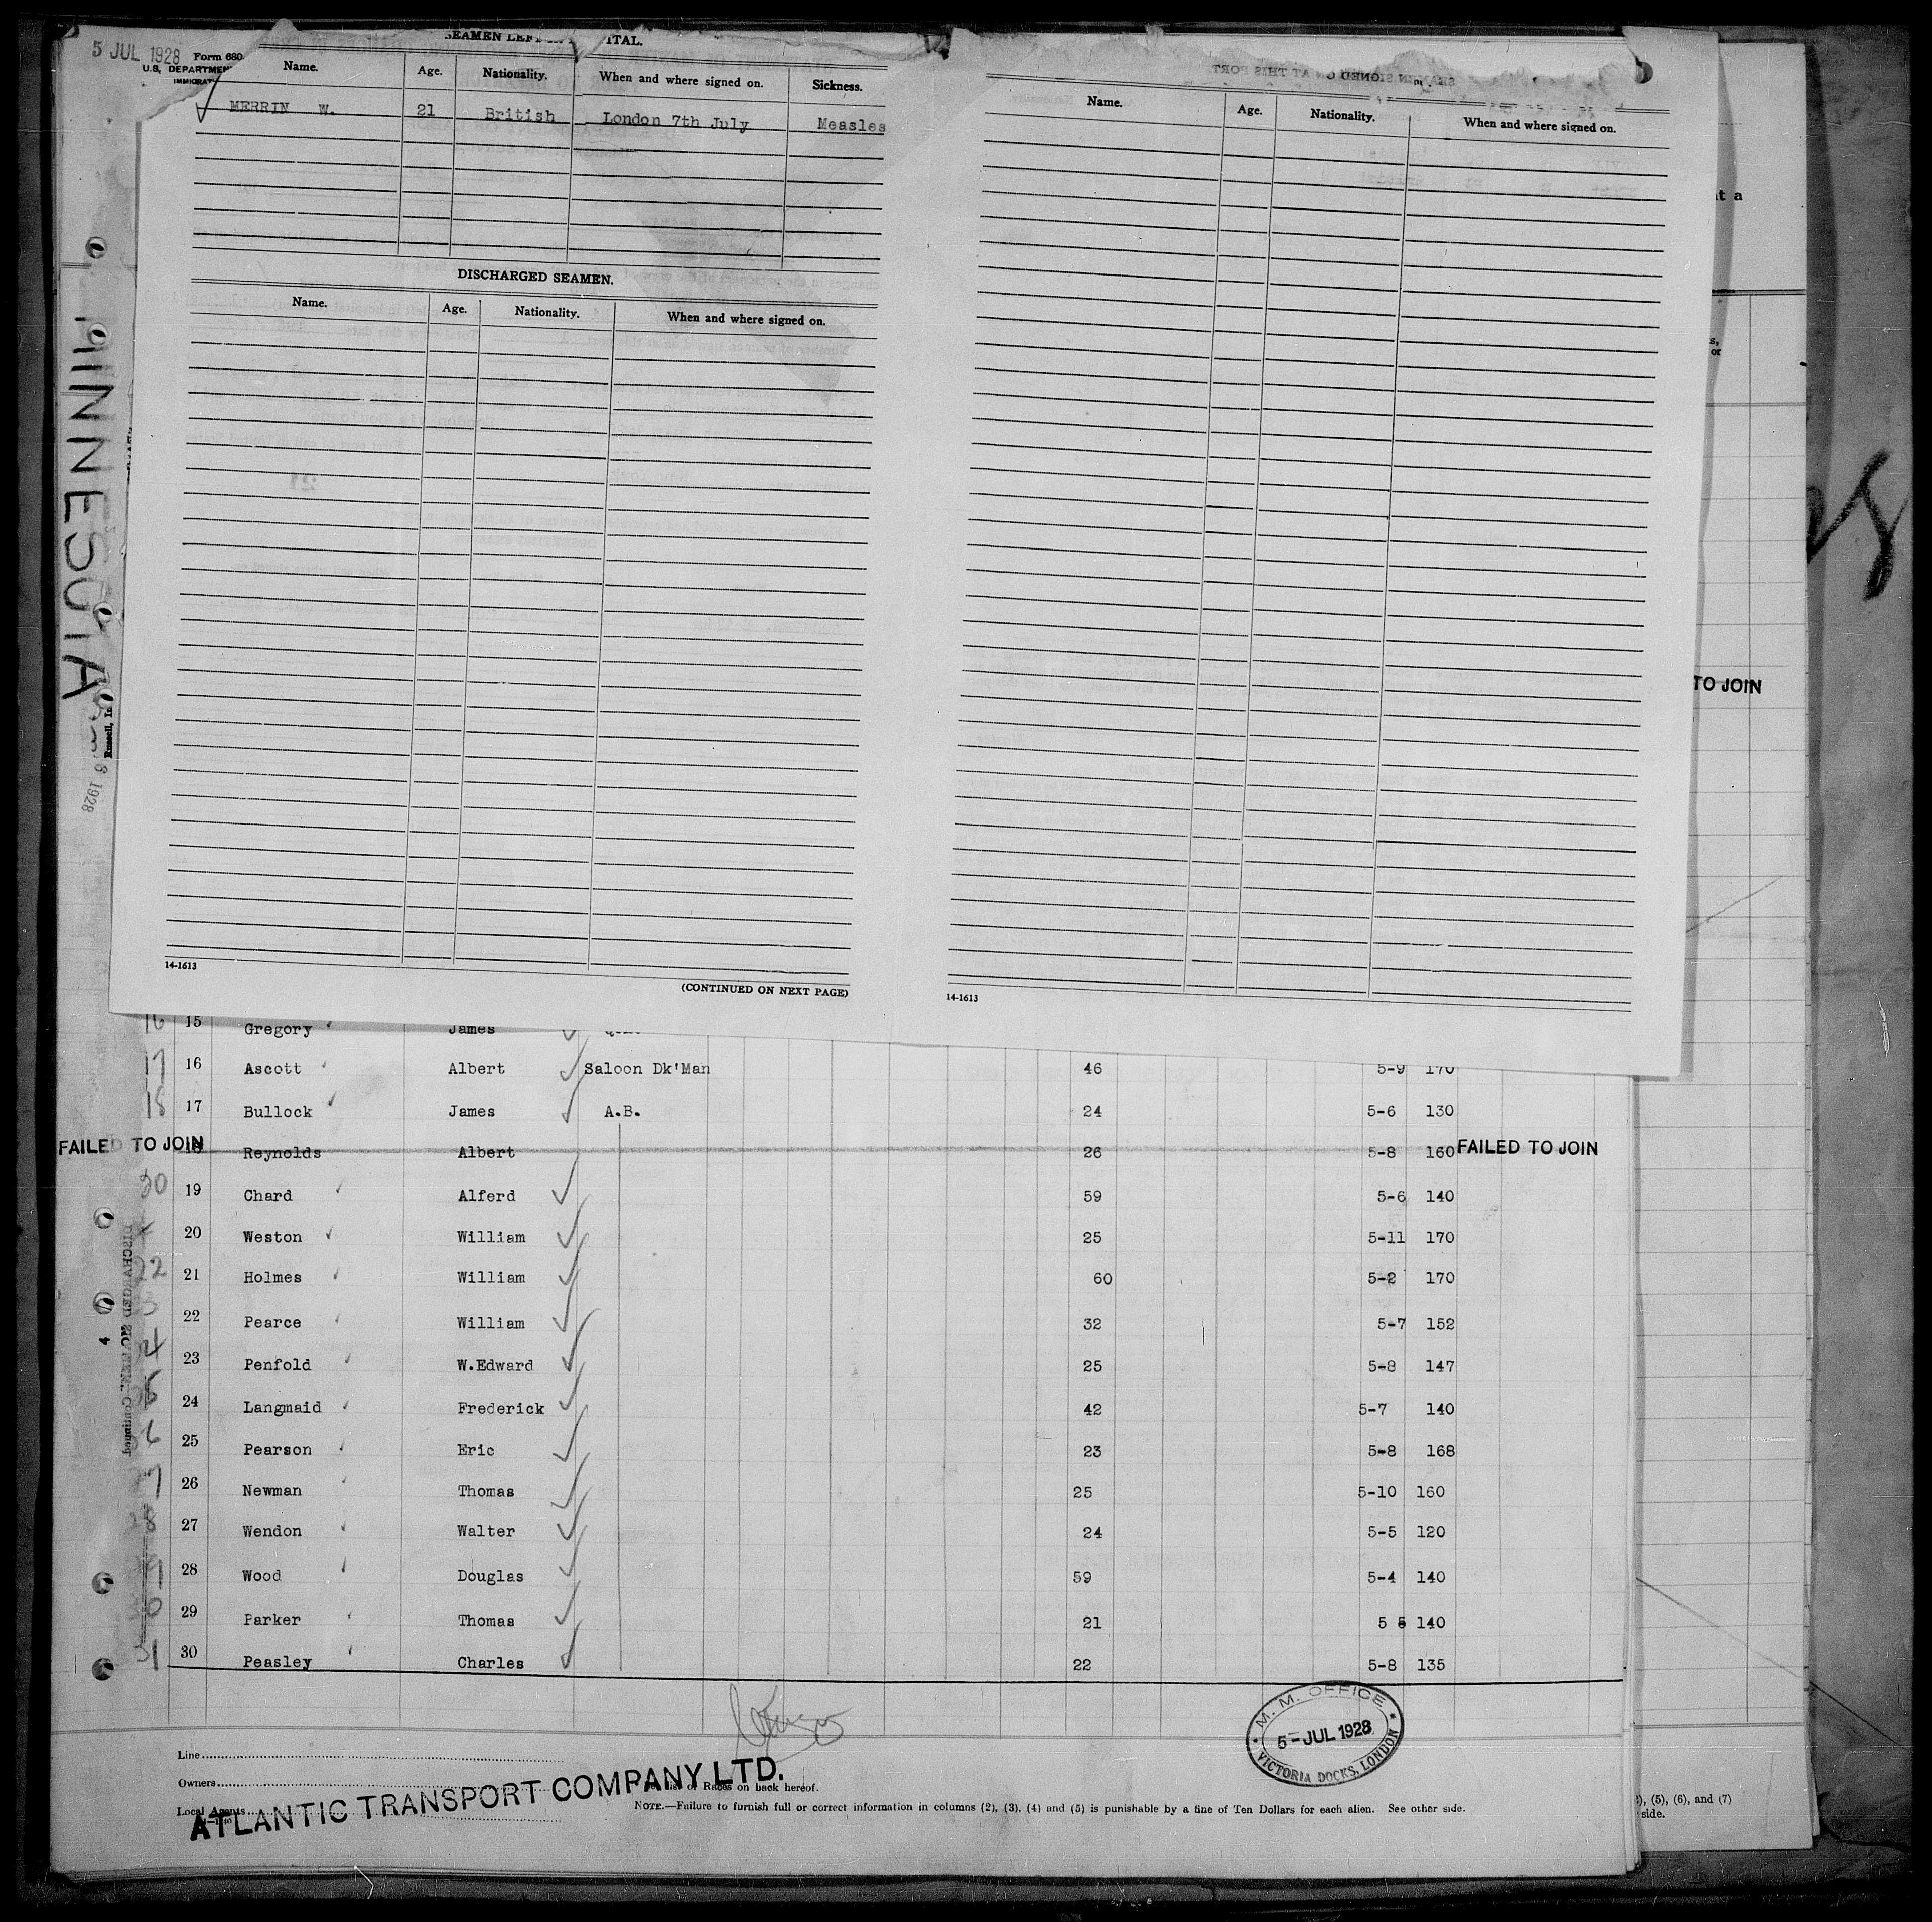 5 JUL 1928
Form 680
U.S. DEPARTMENT
SEAMEN LEFT
ITAL.
Name. Age. Nationality. When and where signed on. Sickness.
MERRIN W. 21 British London 7th July Measles
DISCHARGED SEAMEN.
Name. Age. Nationality. When and where signed on.
14-1613
(CONTINUED ON NEXT PAGE)
SEAMEN SIGNED ON AT THIS PORT
Name. Age. Nationality. When and where signed on.
14-1613
MINNESOTA
1928
TO JOIN
16 15 Gregory James
17 16 Ascott Albert Saloon Dk'Man 46 5-9 170
18 17 Bullock James A.B. 24 5-6 130
FAILED TO JOIN 18 Reynolds Albert 26 5-8 160 FAILED TO JOIN
19 Chard Alferd 59 5-6 140
20 Weston William 25 5-11 170
22 21 Holmes William 60 5-2 170
22 Pearce William 32 5-7 152
4 23 Penfold W.Edward 25 5-8 147
24 Langmaid Frederick 42 5-7 140
6 25 Pearson Eric 23 5-8 168
7 26 Newman Thomas 25 5-10 160
27 Wendon Walter 24 5-5 120
28 Wood Douglas 59 5-4 140
29 Parker Thomas 21 5 5 140
30 Peasley Charles 22 5-8 135
DISCHARGED SEAMEN. Continued
4
M. M. OFFICE
5-JUL 1928
VICTORIA DOCKS, LONDON
Line
Owners
Local Agents
ATLANTIC TRANSPORT COMPANY LTD.
list of Races on back hereof.
NOTE.—Failure to furnish full or correct information in columns (2), (3), (4) and (5) is punishable by a fine of Ten Dollars for each alien. See other side.
(5), (6), and (7)
side.